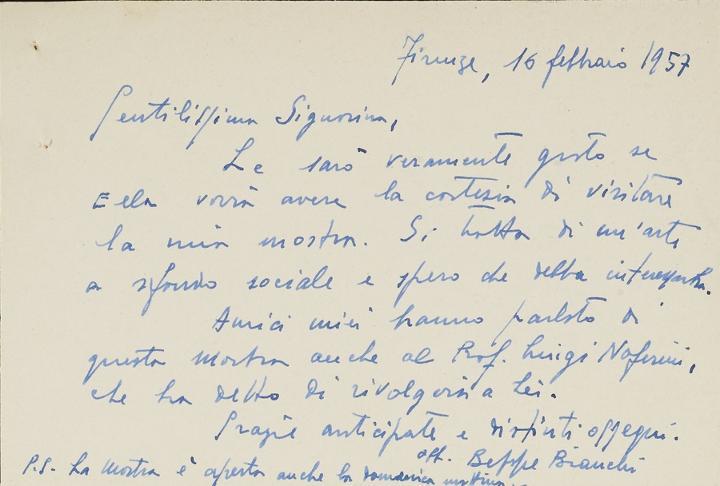 Firenze, 16 febbraio 1957
Gentilissima Signorina,
Le sarò veramente grato se
Ella vorrà avere la cortesia di visitare
la mia mostra. Si tratta di un'arte
a sfondo sociale e spero che debba interessarla.
Amici miei hanno parlato di
questa mostra anche al Prof. Luigi
che ha detto di rivolgersi a Lei.
Grazie anticipate e distinti ossequi.
Beppe Bianchi
P.S. La mostra è aperta anche la domenica mattina